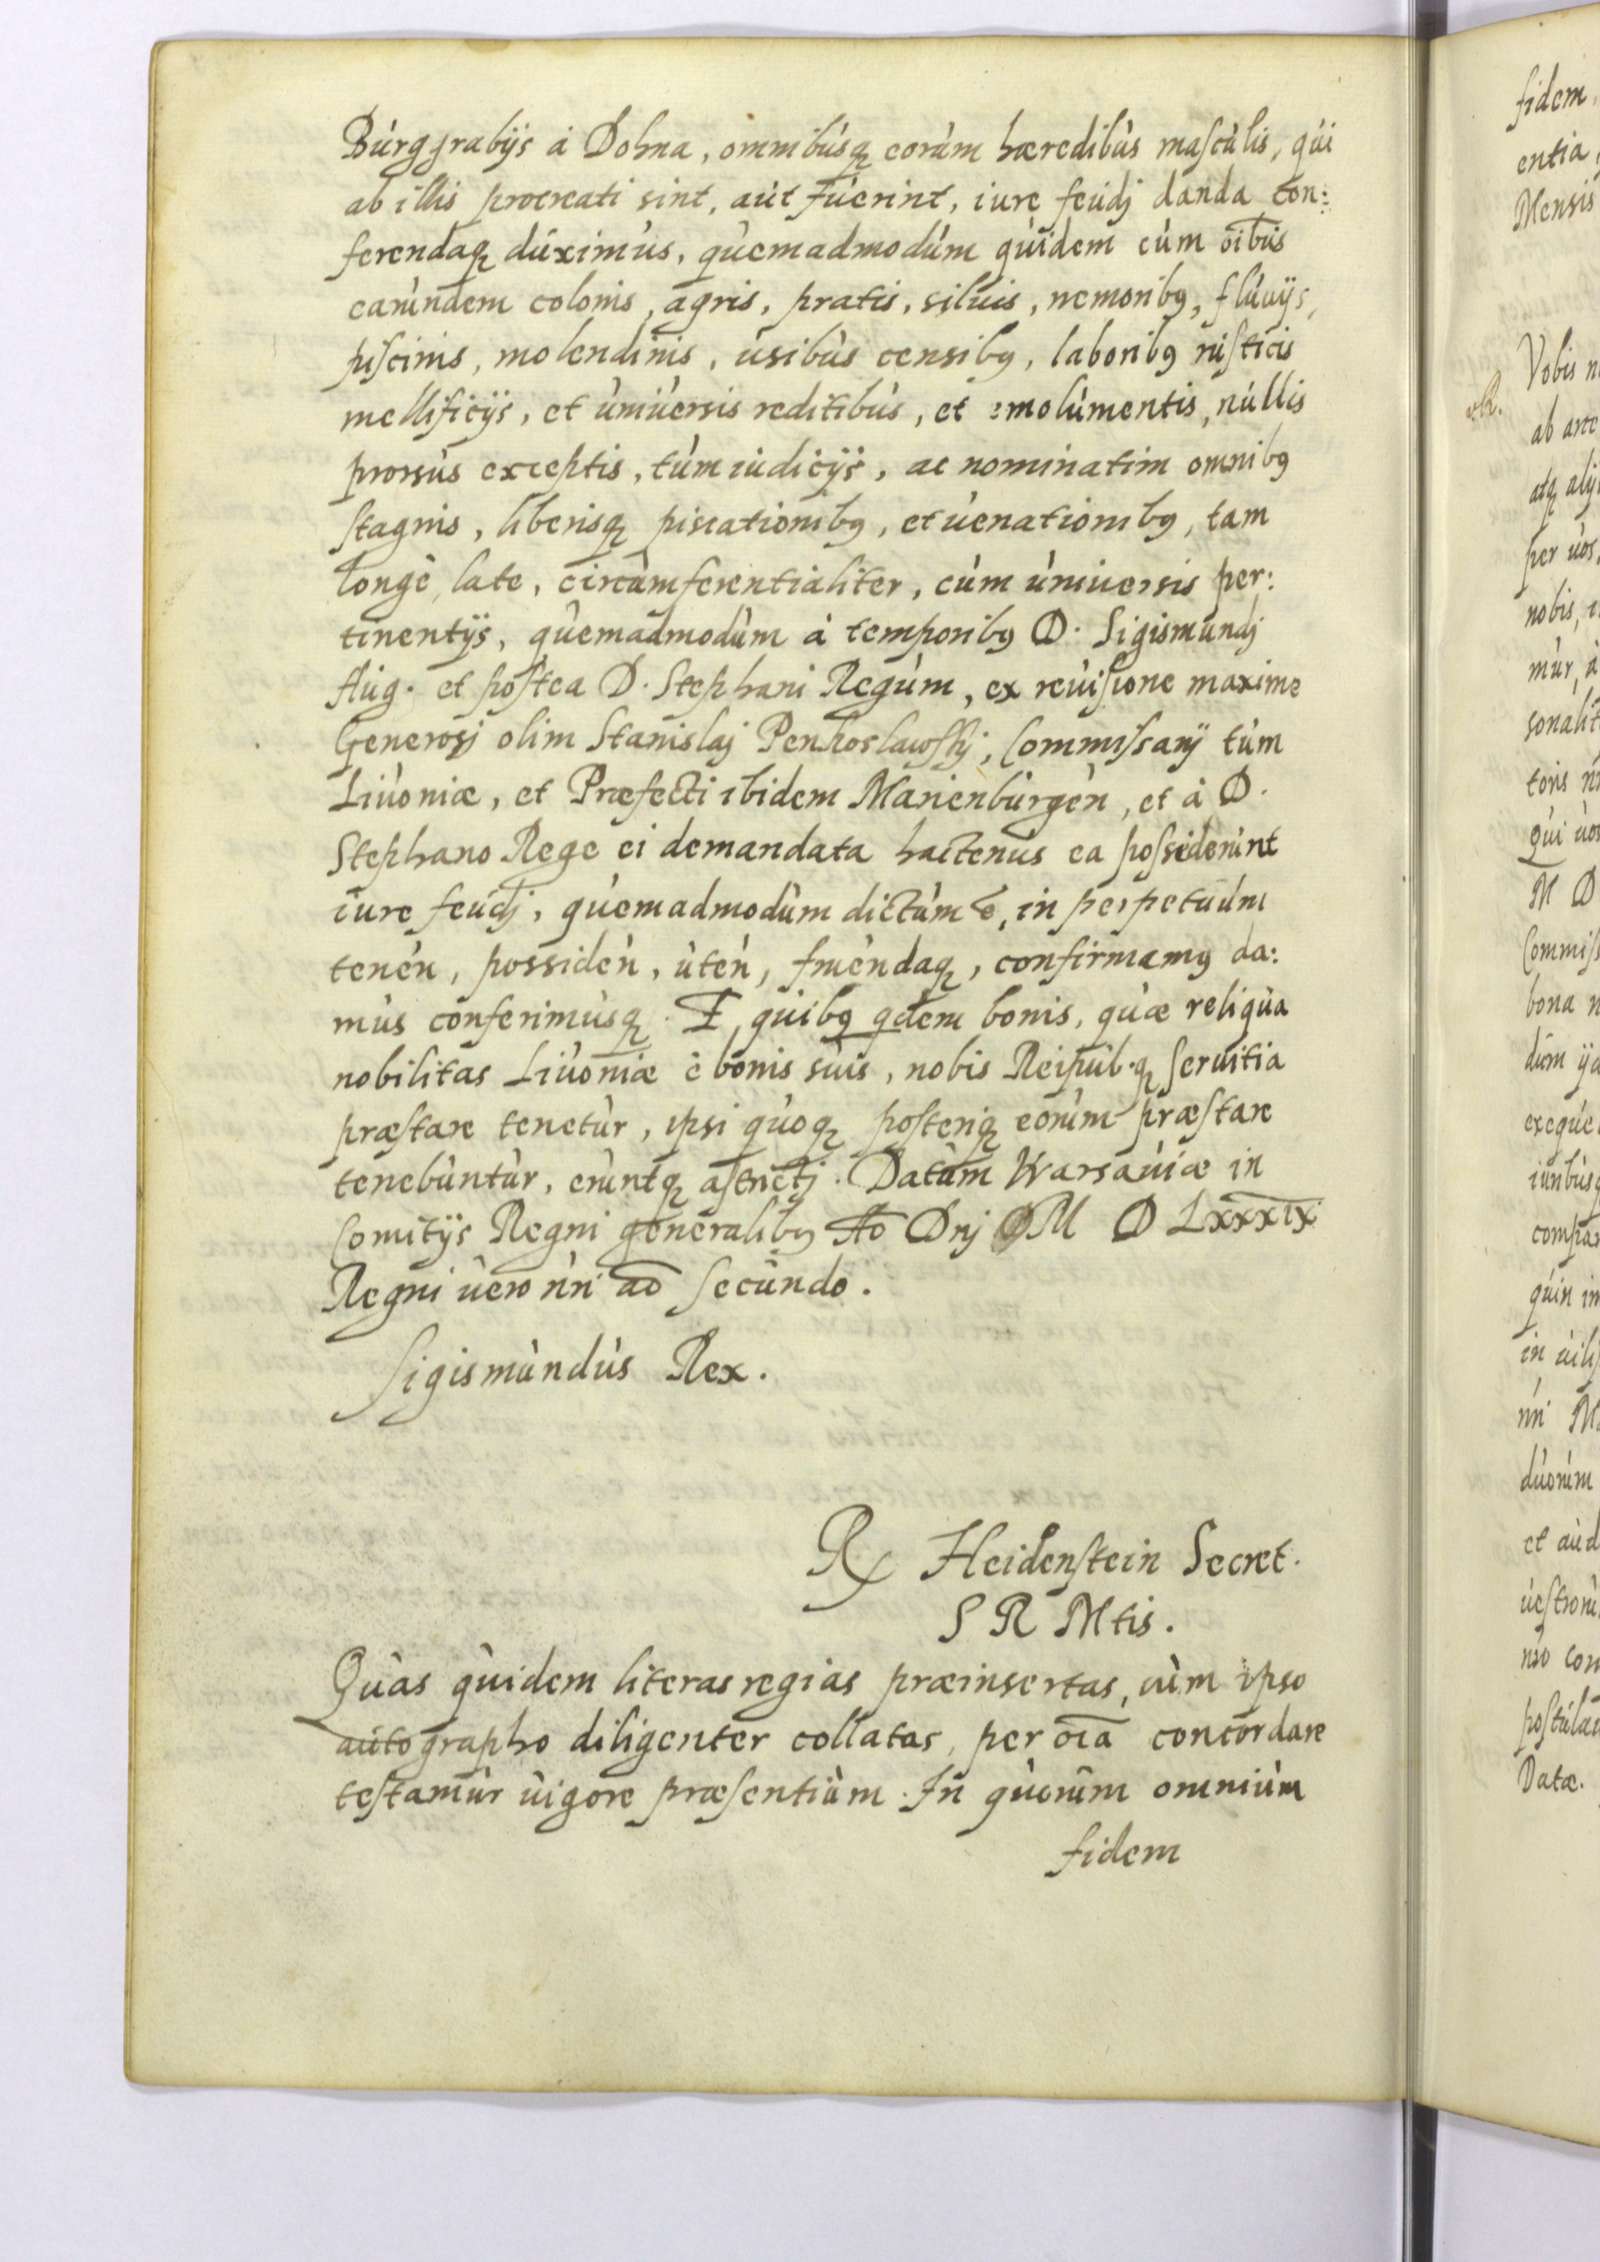 Burggrabijs à Dohna, omnibusq, eorum hæredibus masculis, qui
ab illis procreati sint, aut fuerint, iure feudj danda con:
ferendaq, duximus, quemadmodum quidem cum oibus
earundem colonis, agris, pratis, siluis, nemorib9, fluuijs,
piscinis, molendinis, usibus censib9, laborib9 rusticis
mellificijs, et uniuersis reditibus, et emolumentis, nullis
prorsus exceptis, tum iudicijs, ac nominatim omnib9
stagnis, liberisq, piscationib9, et uenationib9, tam
longè, late, circumferentialiter, cum uniuersis per:
tinentijs, quemadmodum à temporib9 D. Sigismundj
Aug. et postea D. Stephani Regum, ex reuisione maxime
Generosj olim Stanislaj Penkoslawskj, Commissarij tum
Liuoniæ, et Præfecti ibidem Marienburgen, et à D.
Stephano Rege ei demandata hactenus ea possiderunt
iure feudj, quemadmodum dictum ē, in perpetuum
tenen, possiden, uten, fruendaq, confirmam9 da:
mus conferimusq,. E, quib9 qdem bonis, quæ reliqua
nobilitas Liuoniæ è bonis suis, nobis Reipub.q, seruitia
præstare tenetur, ipsi quoq, posteriq, eorum præstare
tenebuntur, eruntq, astrictj. Datum Warsauiæ in
Comitijs Regni generalib9 Ao Dnj M D Lxxxix
Regni uero nri ao secundo.
Sigismundus Rex.
R Heidenstein Secret.
S R Mtis.
Quas quidem literas regias præinsertas, cum ipso
autographo diligenter collatas, per oia concordare
testamur uigore præsentium. In quorum omnium
fidem
fidem
entia,
Mensis
Vobis
ab arce
atq,
per uos,
nobis,
mur, à
toris
qui uos
M D
bona
dum
iuribusq
quin
in
nri
duorum
et
Datæ.